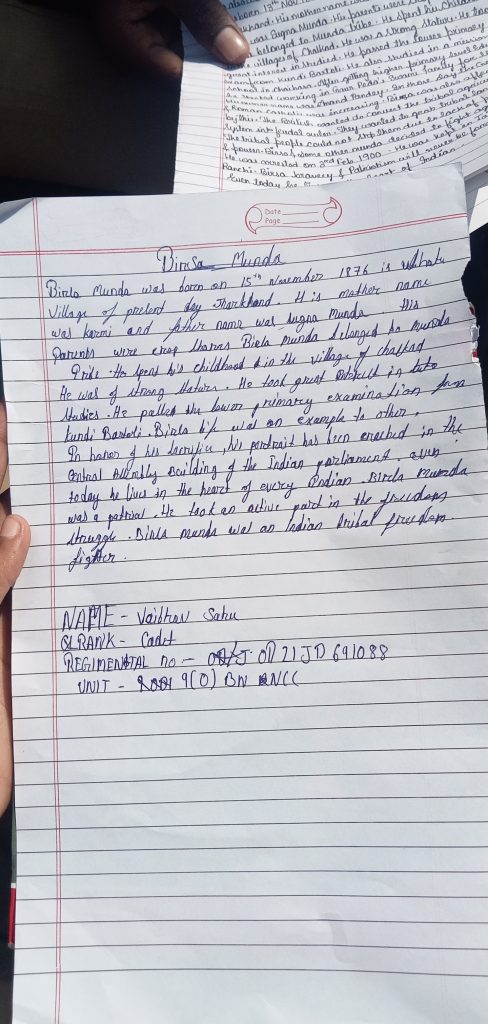 born, 13th Nov
khand. His mother name
was Sugna Munda. His parents were
belonged to Munda Tribe. He spent his Childhood
village of Chalkad. He was a strong stature. He took
great interest in studied. He passed the lower primary
exam from Kundi Bartoli. He also studied in a mission
School in Chaibasa. After getting higher primary level
he started working in Gaur Pedai Swami family for
His name was Anand Pandey. In those day
& Roman Catholic was increasing. Birsa was also
by this. The British wanted to convert the tribal agrarian
System into feudal system. They wanted to grab tribal land
The tribal people could not stop them due to lack of
& power. Birsa & some other munda decided to fight
He was arrested on 3rd Feb 1900. He was kept in Jail
Ranchi. Birsa bravery & Patriotism will never be forgotten
Even today he of Indian.
Date
Page
Birsa Munda
Birla Munda was born on 15th November 1876 is
Village of present day Jharkhand. His mother name
was karmi and father name was sugna Munda. His
Parents were Birla munda belonged to munda
Tribe. He spent his childhood in the village of chalkad
He was of strong stature. He took great in
studies. He passed the lower primary examination from
Kundi Bartoli. Birla life was an example to other.
In honor of his sacrifice, his portrait has been erected in the
Central Assembly Building of the Indian parliament. even
today he lives in the heart of every Indian. Birla munda
was a patriot. He took an active part in the freedom
struggle. Birla munda was an Indian tribal freedom
fighter.
NAME - Vaibhav Sahu
RANK - Cadet
REGIMENTAL no - OD 21 JD 691088
UNIT - 9(O) BN NCC